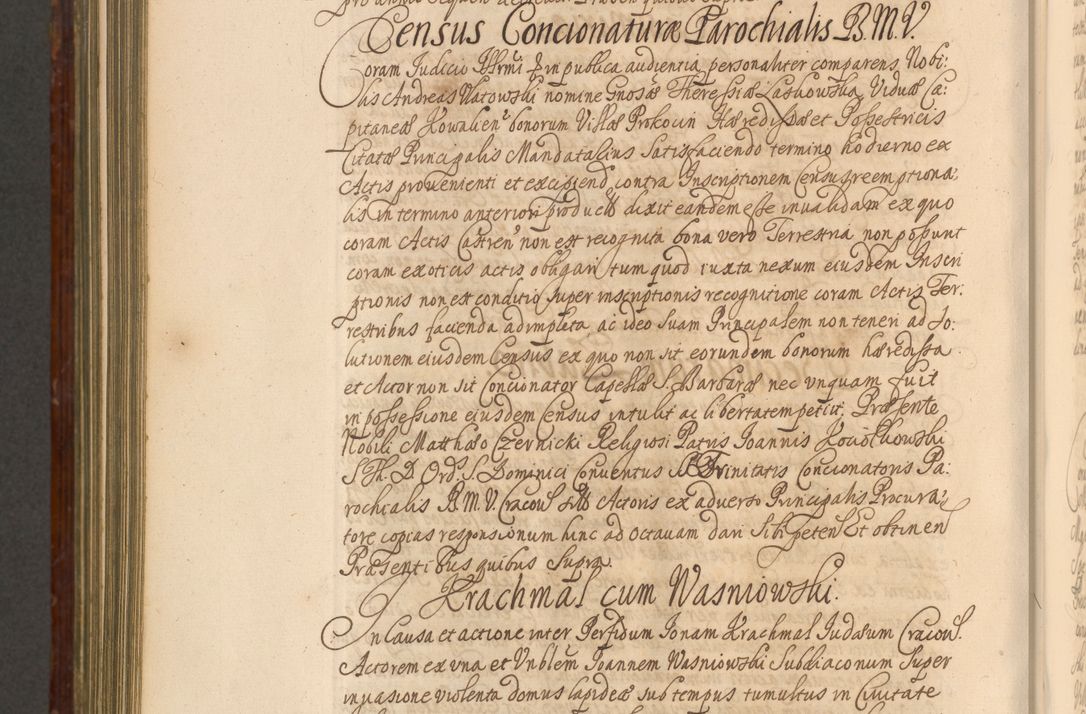 Census Concionaturæ Parochialis B.M.V.
Coram Judicio Illrmi & in publica audientia personaliter comparens Nobi:
lis Andreas Watowski nomine Gnosæ Theressiæ Laskowska Viduæ Ca
pitaneæ Kowalien~ bonorum Villæ Prokocin Hæredissæ et Possestricis
Citatæ Principalis Mandatalius satisfaciendo termino hodierno ex
Actis provenienti et excipiend contra Inscriptionem Census reemptiona:
lis in termino anteriori product dixit eandem esse invalidam ex quo
coram Actis Castren~ non est recognita bona vero Terrestria non possunt
coram exoticis actis obligari tum quod iuxta nexum eiusdem Inscri
ptionis non est conditio super inscriptionis recognitione coram Actis Ter:
restribus facienda adimpleta ac ideo suam Principalem non teneri ad So:
lutionem eiusdem Census ex quo non sit eorundem bonorum hæredissa
et Actor non sit Concionator Capellæ S. Barbaræ nec unquam fuit
in possessione eiusdem Census intulit ac libertatem petiit. Præsente
Nobili Matthæo Czernicki Religiosi Patris Joannis
S. Th. D. Ord. S. Dominici Conventus SS Trinitatis Concionatoris Pa:
rochialis B.M.V. Cracov Actoris ex adverso Principalis Procura:
tore copias responsionum hinc ad octavam dari sibi peten Et obtinen
Præsentibus quibus supra.
Krachmal cum Wasniowski.
In Causa et actione inter Perfidum Jonam Krachmal Judæum Cracov.
Actorem ex una et Vnblem Joannem Wasniowski Subdiaconum super
invasione violenta domus lapideæ sub tempus tumultus in Civitate